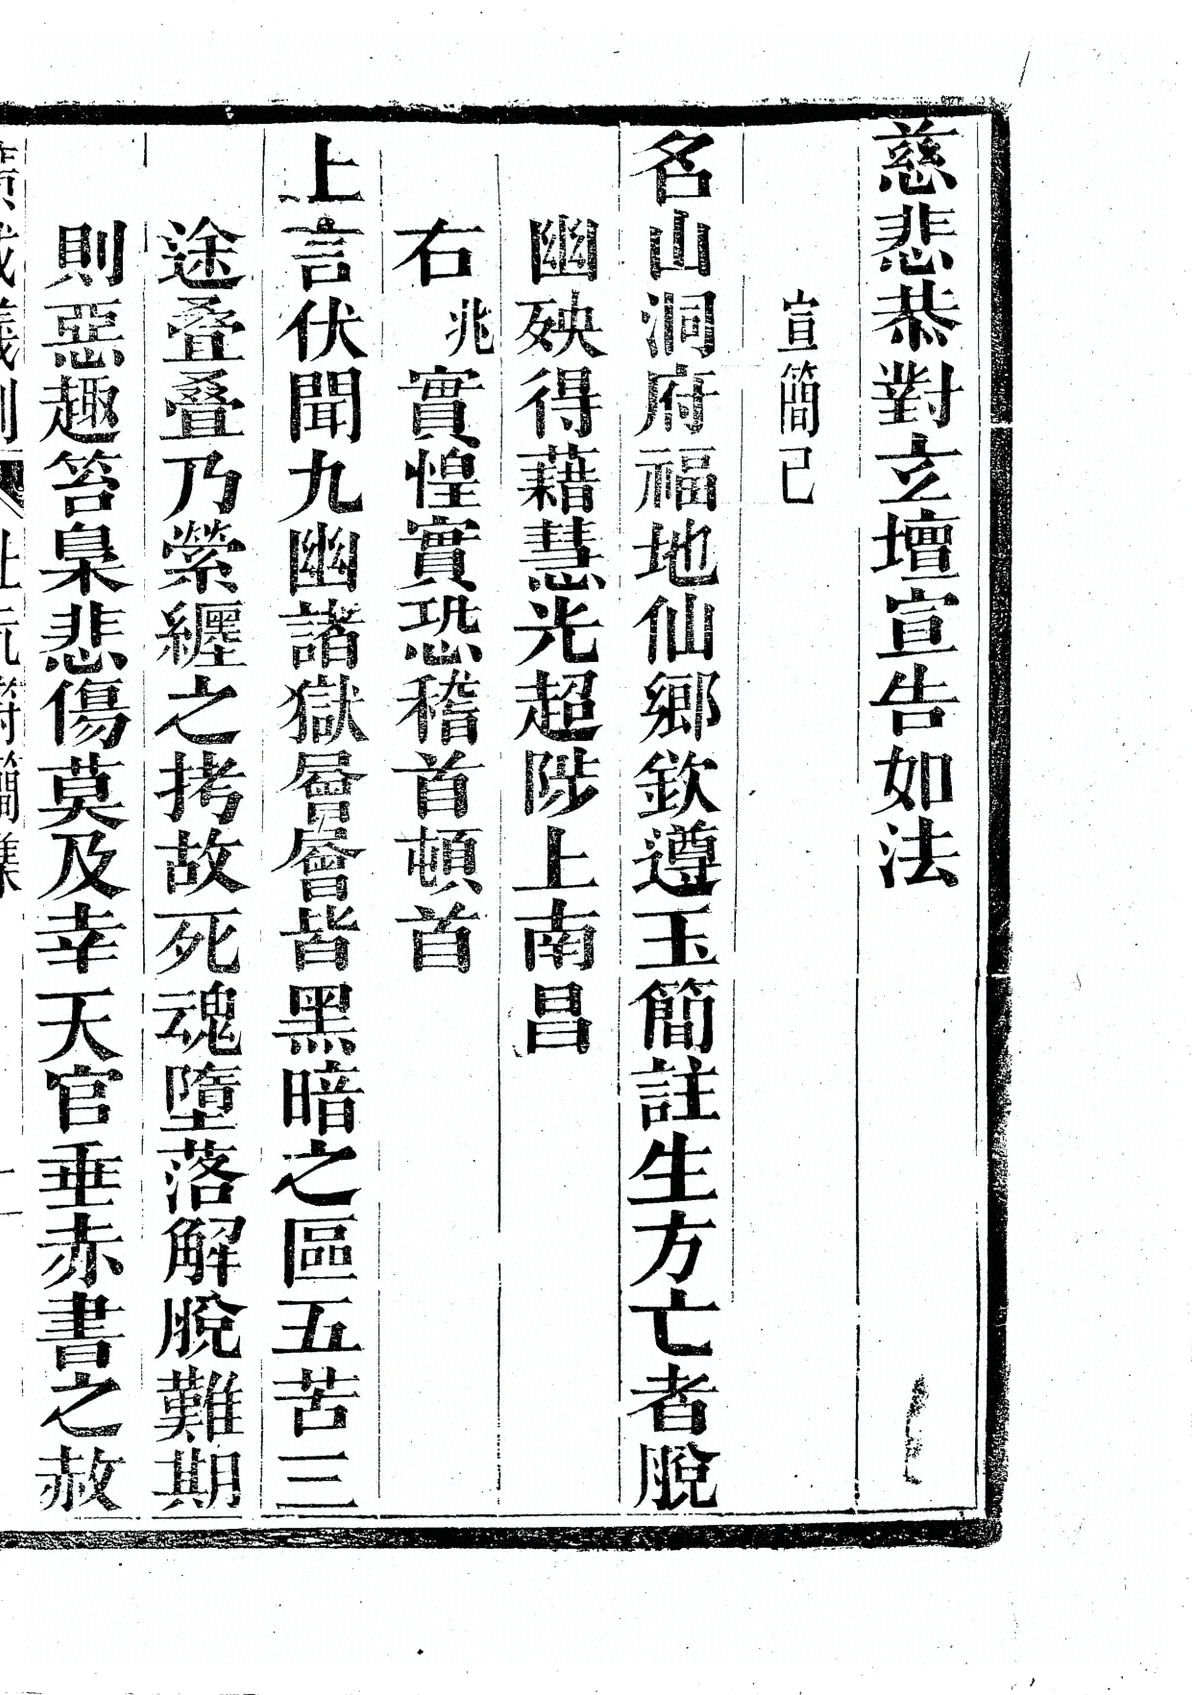 慈悲恭對立壇宣告如法
宣簡已
名山洞府福地仙鄉欽遵玉簡註生方亡者脫
幽殃得藉慧光超陟上南昌
右兆實惶實恐稽首頓首
上言伏聞九幽諸獄層層皆黑暗之區五苦三
途叠叠乃縈纏之拷故死魂墮落解脫難期
則惡趣笞梟悲傷莫及幸天官垂赤書之赦